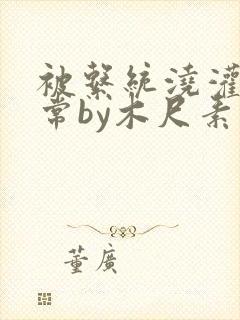 被系統澆灌
常by木尺素
董廣